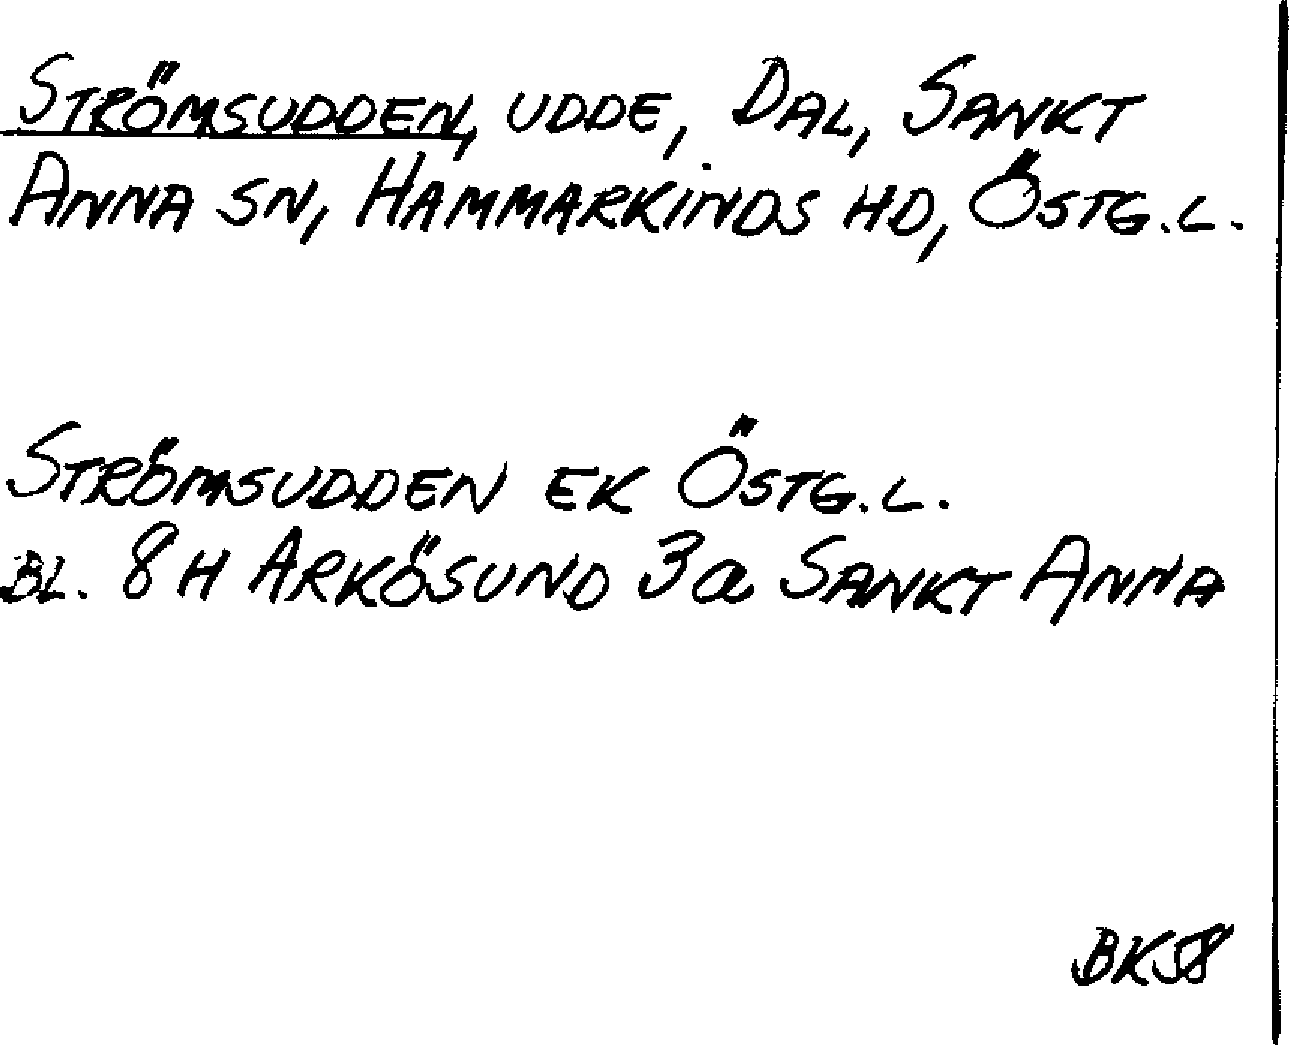 STRÖMSUDDEN, UDDE, DAL, SANKT
ANNA SN, HAMMARKINDS HD, ÖSTG.L.
STRÖMSUDDEN EK ÖSTG.L.
BL. 8H ARKÖSUND 3a SANKT ANNA